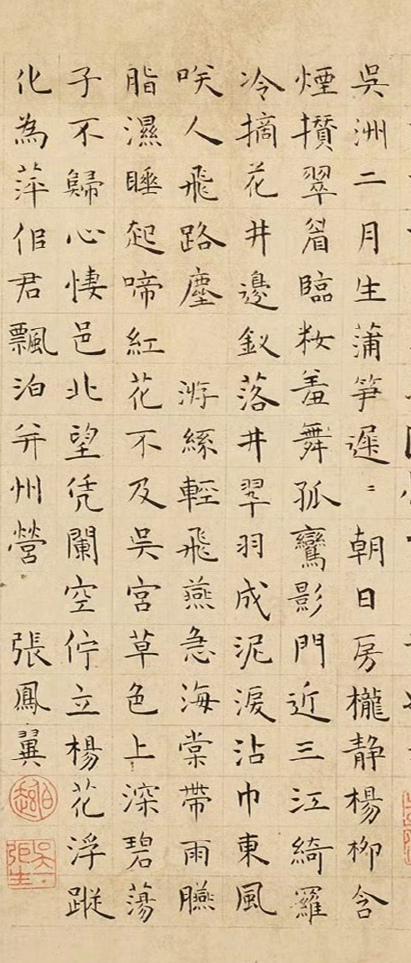 吳洲二月生蒲笋遲〻朝日房櫳靜楊柳含
煙攢翠眉臨妝羞舞孤鸞影門近三江綺羅
冷摘花井邊釵落井翠羽成泥淚沾巾東風
咲人飛路塵 游絲輕飛燕急海棠帶雨臙
脂濕睡起啼紅花不及吳宮草色上深碧蕩
子不歸心悽邑北望凭闌空佇立楊花浮蹤
化為萍侶君飄泊并州營 張鳳翼
伯起